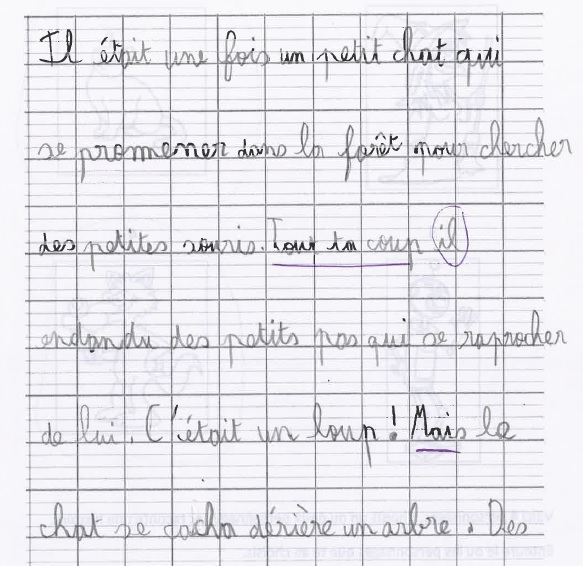 Il était une fois un petit chat qui
se promener dans la forêt pour chercher
des petites souris. Tout tn coup il
endandu des petits pas qui se raprocher
de lui. C'était un loup ! Mais le
chat se cacha dérière un arbre. Des